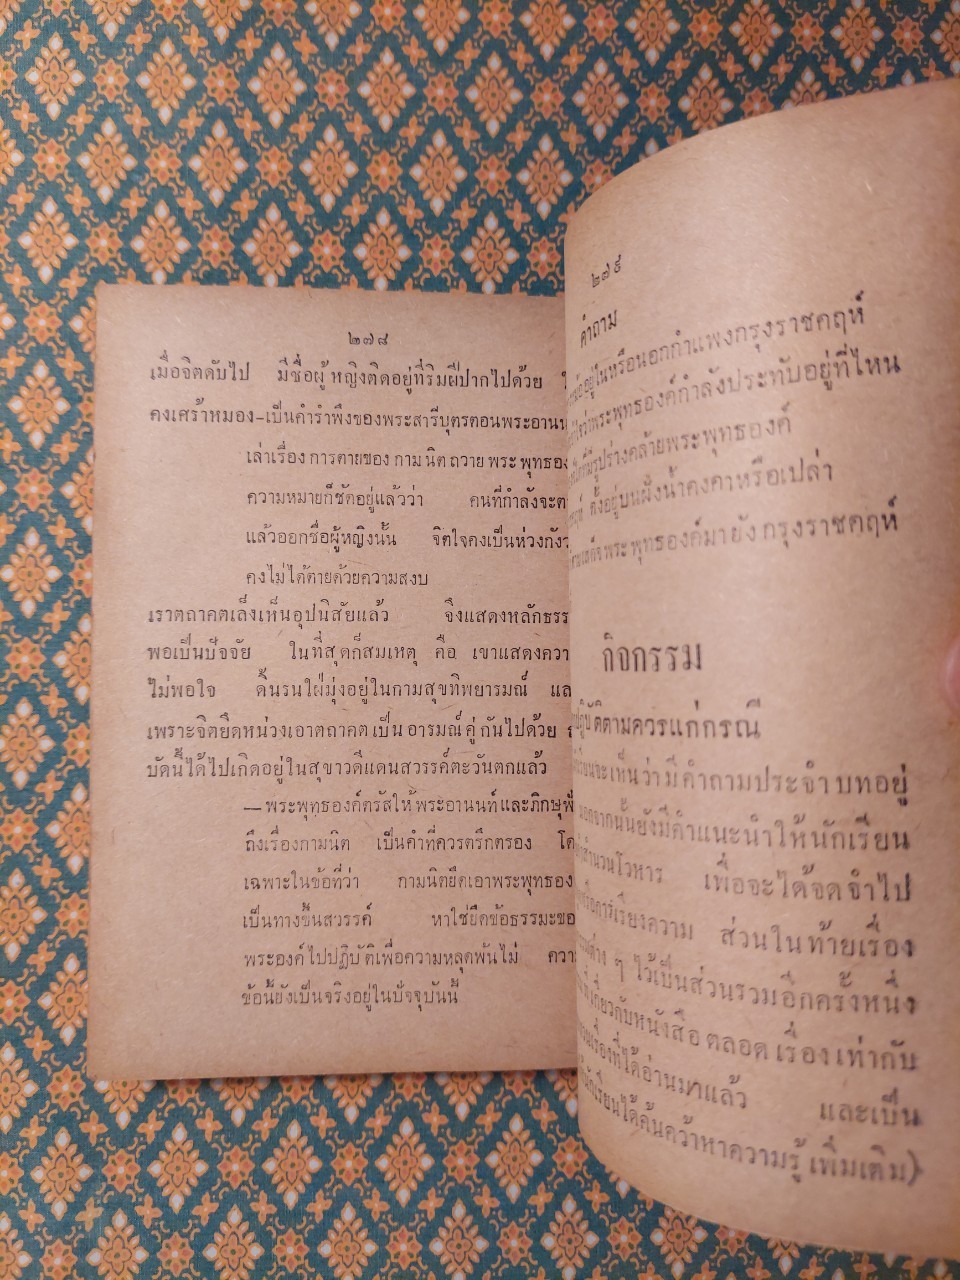 ๒๗๘
เมื่อจิตดับไป มีชื่อผู้หญิงติดอยู่ที่ริมฝีปากไปด้วย
คงเศร้าหมอง-เป็นคำรำพึงของพระสารีบุตรตอนพระอานน
เล่าเรื่องการตายของกามนิตถวายพระพุทธอง
ความหมายก็ชัดอยู่แล้วว่า คนที่กำลังจะต
แล้วออกชื่อผู้หญิงนั้น จิตใจคงเป็นห่วงกังว
คงไม่ได้ตายด้วยความสงบ
เราตถาคตเล็งเห็นอุปนิสัยแล้ว จึงแสดงหลักธรร
พอเป็นปัจจัย ในที่สุดก็สมเหตุ คือ เขาแสดงควา
ไม่พอใจ ดิ้นรนใฝ่มุ่งอยู่ในกามสุขทิพยารมณ์ แล
เพราะจิตยึดหน่วงเอาตถาคตเป็นอารมณ์คู่กันไปด้วย
บัดนี้ได้ไปเกิดอยู่ในสุขาวดีแดนสวรรค์ตะวันตกแล้ว
—พระพุทธองค์ตรัสให้พระอานนท์และภิกษุฟั
ถึงเรื่องกามนิต เป็นคำที่ควรตรึกตรอง โด
เฉพาะในข้อที่ว่า กามนิตยึดเอาพระพุทธอง
เป็นทางขึ้นสวรรค์ หาใช่ยึดข้อธรรมะขอ
พระองค์ไปปฏิบัติเพื่อความหลุดพ้นไม่ ควา
ข้อนี้ยังเป็นจริงอยู่ในปัจจุบันนี้
๒๗๙
คำถาม
อยู่ในหรือนอกกำแพงกรุงราชคฤห์
ว่าพระพุทธองค์กำลังประทับอยู่ที่ไหน
ที่มีรูปร่างคล้ายพระพุทธองค์
ตั้งอยู่บนฝั่งน้ำคงคาหรือเปล่า
เสด็จพระพุทธองค์มายังกรุงราชคฤห์
กิจกรรม
ปฏิบัติตามควรแก่กรณี
เรียนจะเห็นว่ามีคำถามประจำบทอยู่
นอกจากนั้นยังมีคำแนะนำให้นักเรียน
สำนวนโวหาร เพื่อจะได้จดจำไป
หรือการเรียงความ ส่วนในท้ายเรื่อง
ต่าง ๆ ไว้เป็นส่วนรวมอีกครั้งหนึ่ง
เกี่ยวกับหนังสือตลอดเรื่องเท่ากับ
เรื่องที่ได้อ่านมาแล้ว และเป็น
นักเรียนได้ค้นคว้าหาความรู้เพิ่มเติม)